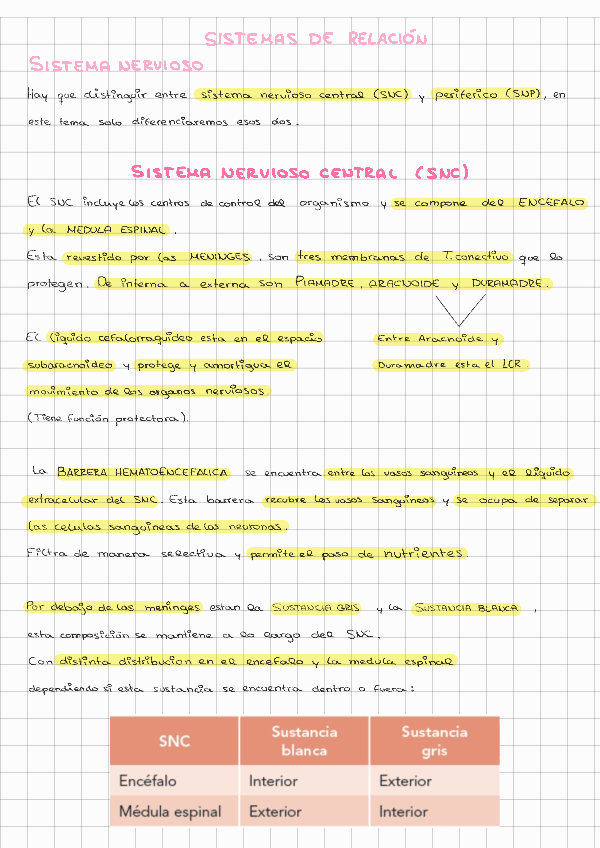 SISTEMAS DE RELACIÓN
SISTEMA NERVIOSO
Hay que distinguir entre sistema nervioso central (SNC) y periferico (SNP), en
este tema solo diferenciaremos esos dos.
SISTEMA NERVIOSO CENTRAL (SNC)
El SNC incluye los centros de control del organismo y se compone del ENCEFALO
y la MEDULA ESPINAL.
Esta revestido por las MENINGES, son tres membranas de T.conectivo que lo
protegen. De interna a externa son PIAMADRE, ARACNOIDE y DURAMADRE.
El liquido cefalorraquideo esta en el espacio
subaracnoideo y protege y amortigua el
movimiento de los organos nerviosos
(Tiene función protectora).
Entre Aracnoide y
Duramadre esta el LCR.
La BARRERA HEMATOENCEFALICA se encuentra entre los vasos sanguineos y el liquido
extracelular del SNC. Esta barrera recubre los vasos sanguineos y se ocupa de separar
las celulas sanguineas de las neuronas.
Filtra de manera selectiva y permite el paso de nutrientes.
Por debajo de las meninges estan la SUSTANCIA GRIS y la SUSTANCIA BLANCA,
esta composición se mantiene a lo largo del SNC.
Con distinta distribucion en el encefalo y la medula espinal
dependiendo si esta sustancia se encuentra dentro o fuera:
SNC Sustancia blanca Sustancia gris
Encéfalo Interior Exterior
Médula espinal Exterior Interior